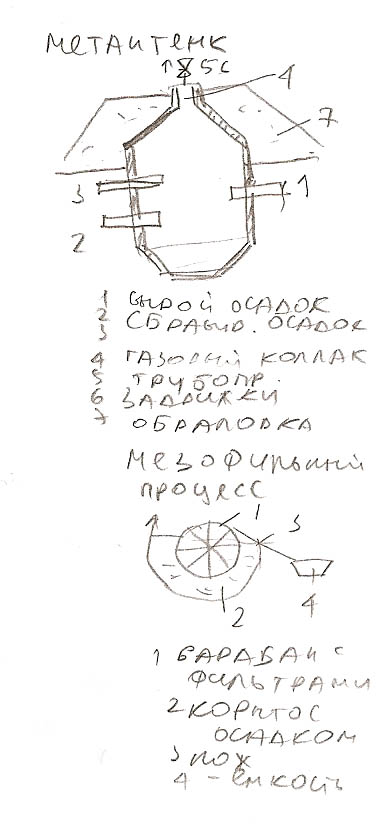 метантенк
5 6
4
7
3
1
2
1 сырой осадок
2 сбражив. осадок
3
4 газовый коллак
5 трубопр.
6 задвижки
7 обраловка
мезофильный
процесс
1
3
4
2
1 барабан с
фильтрами
2 корытос
осадком
3 нож
4 - ёмкость